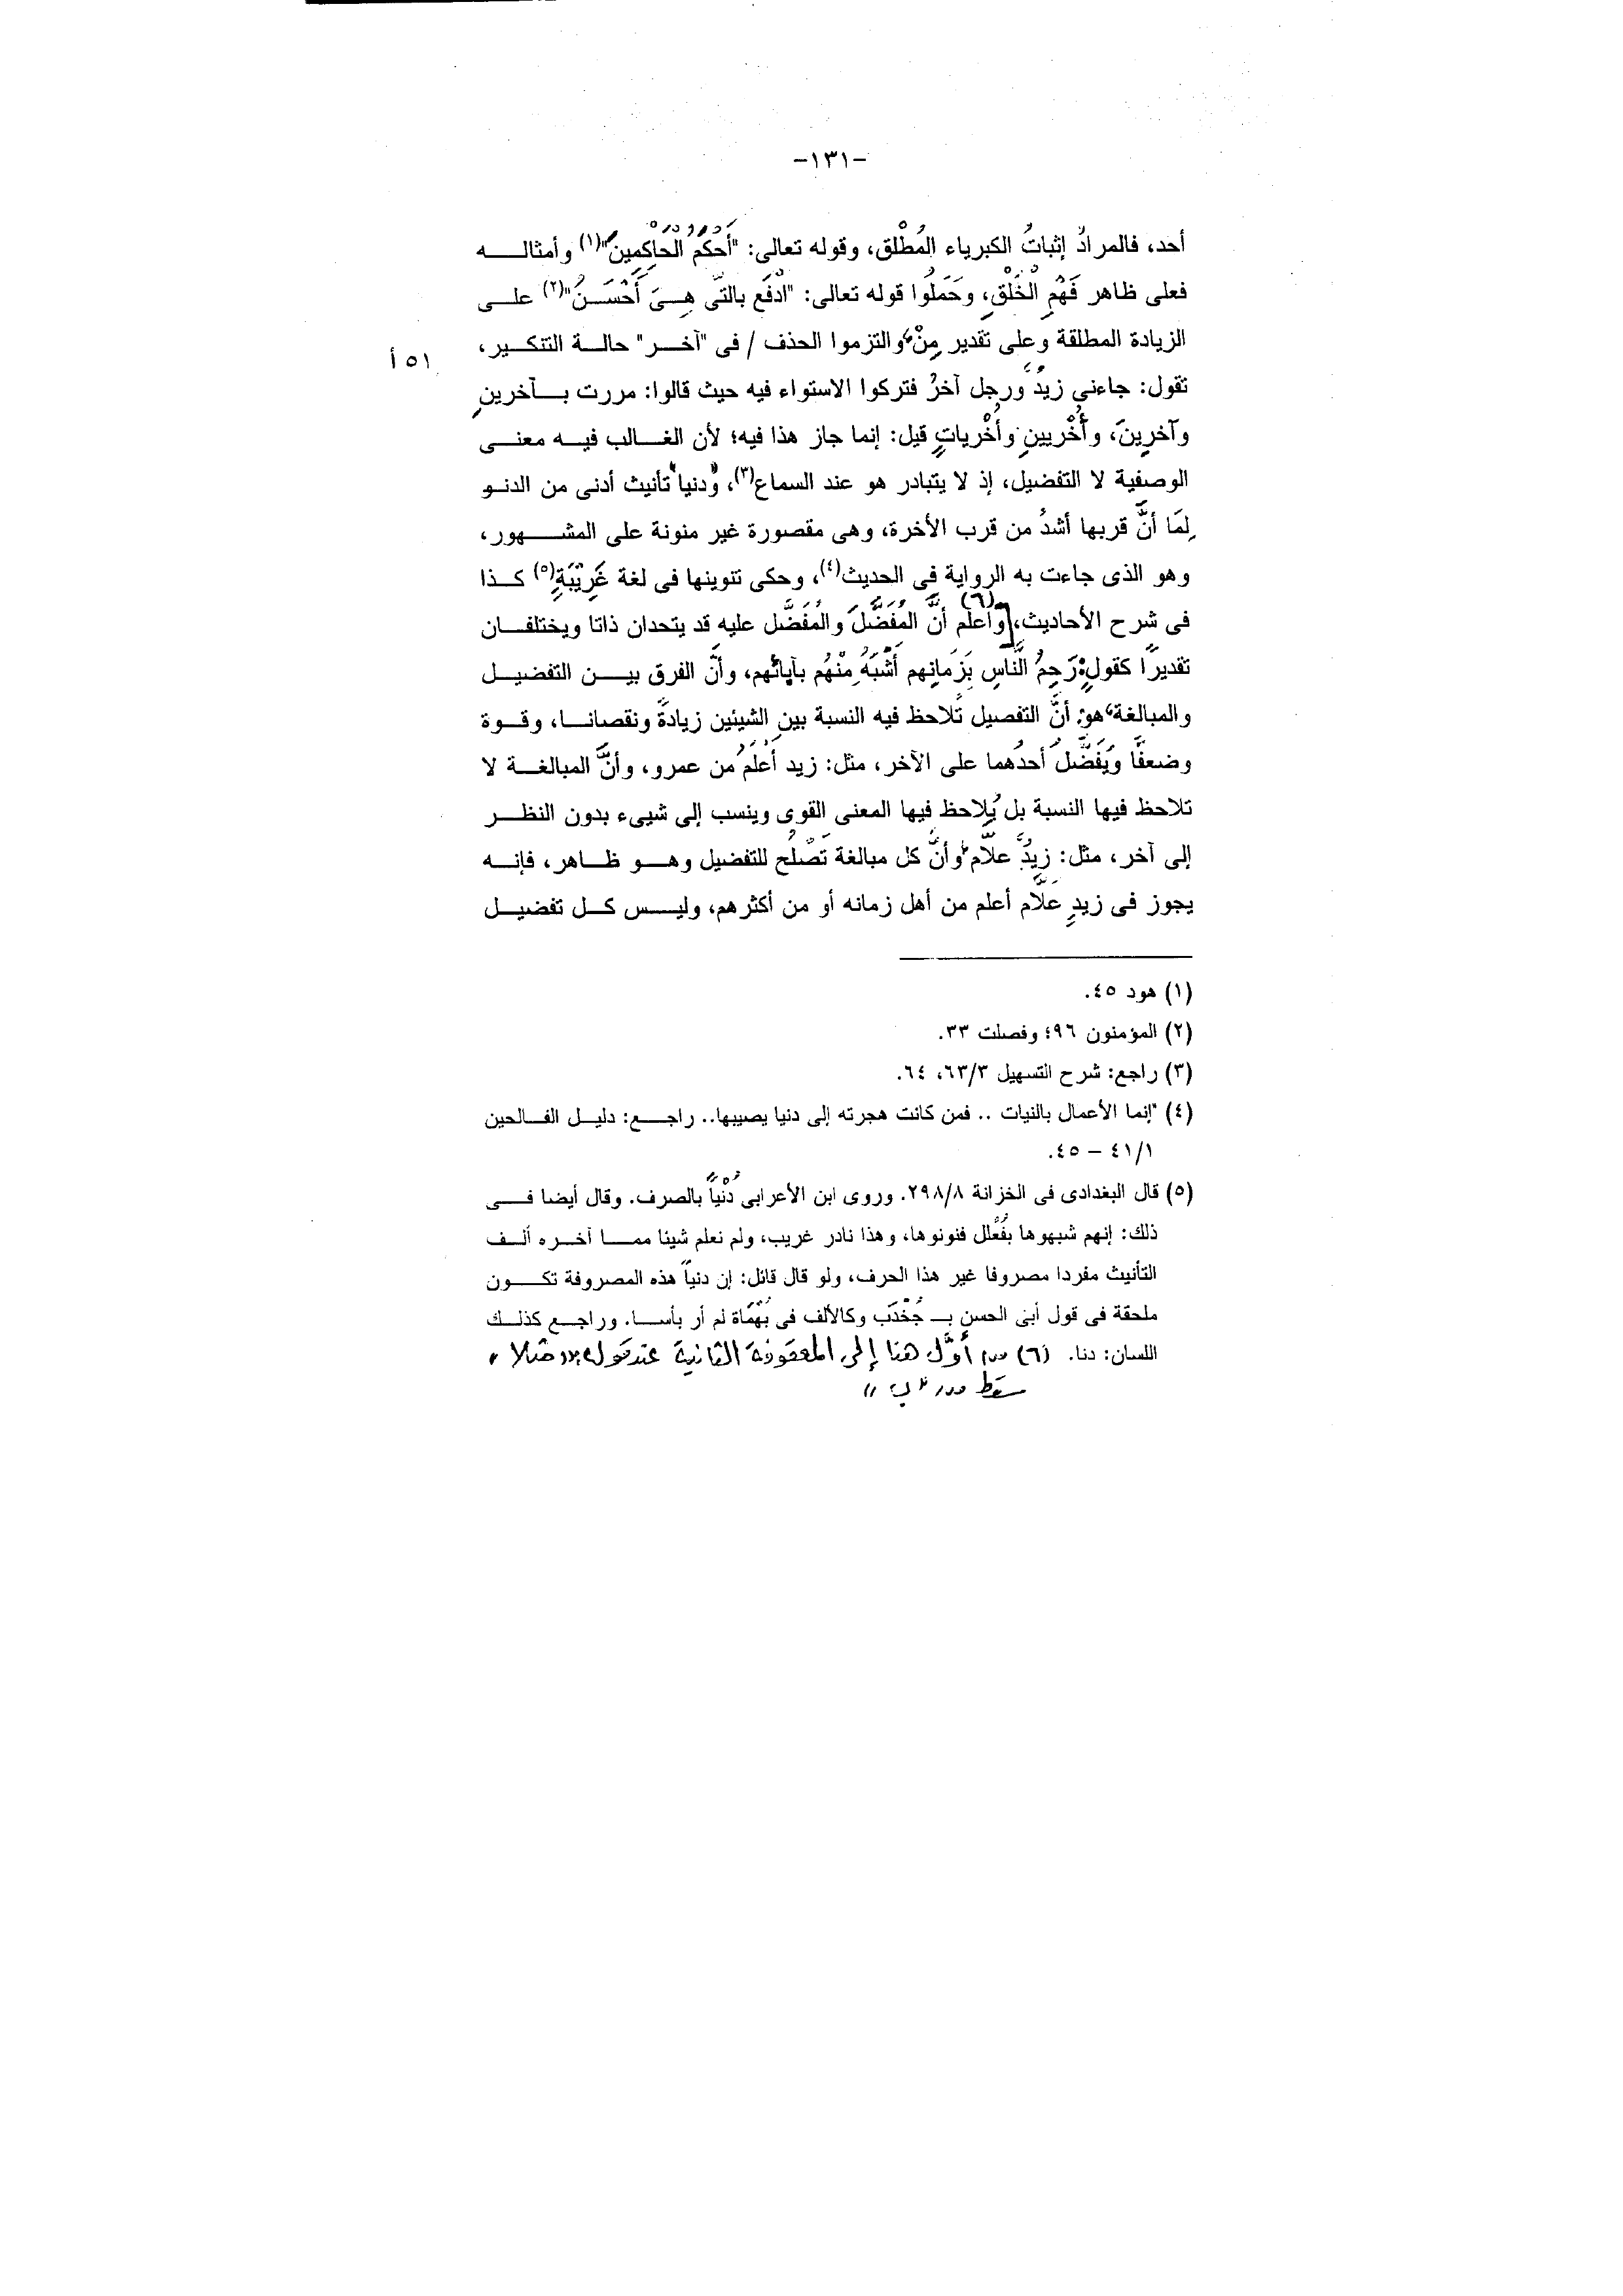 -١٣١-
أحد، فالمرادُ إثباتُ الكبرياء المُطْلق، وقوله تعالى: "أَحكَمُ الحاكِمينَ"(١) وأمثاله
فعلى ظاهر فَهْمِ الْخَلْقِ، وحَمَلُوا قوله تعالى: "ادْفَع بالتَّى هِىَ أَحْسَنُ"(٢) على
الزيادة المطلقة وعلى تقدير مِنْ، والتزموا الحذف / فى "آخر" حالة التنكير،
٥١ أ
تقول: جاءنى زيدٌ ورجل آخرُ فتركوا الاستواء فيه حيث قالوا: مررت بآخرينِ
وآخرِينَ، وأُخْريينِ وأُخْرياتٍ قيل: إنما جاز هذا فيه؛ لأن الغالب فيه معنى
الوصفية لا التفضيل، إذ لا يتبادر هو عند السماع(٣)، و"دنيا" تأنيث أدنى من الدنو
لِمَا أنَّ قربها أشدُ من قرب الأخرة، وهى مقصورة غير منونة على المشهور،
وهو الذى جاءت به الرواية فى الحديث(٤)، وحكى تنوينها فى لغة غَرِيْبَةٍ(٥) كذا
فى شرح الأحاديث، [(٦)وأعلم أنَّ المُفَضَّلَ والمُفَضَّل عليه قد يتحدان ذاتا ويختلفان
تقديرًا كقولٍ: رَحِمُ النَّاسِ بَزَمَانِهم أَشْبَهُ مِنْهُم بآبائهم، وأنَّ الفرق بين التفضيل
والمبالغة، هو: أنَّ التفصيل تُلاحظ فيه النسبة بين الشيئين زيادةً ونقصانا، وقوة
وضعفًا وَيُفَضَّلُ أحدُهما على الآخر، مثل: زيد أَعْلَمُ من عمرو، وأنَّ المبالغة لا
تلاحظ فيها النسبة بل يُلاحظ فيها المعنى القوى وينسب إلى شيىء بدون النظر
إلى آخر، مثل: زيدٌ علاَّم، وأنَّ كل مبالغة تَصْلُح للتفضيل وهو ظاهر، فإنه
يجوز فى زيدٍ عَلاَّم أعلم من أهل زمانه أو من أكثرهم، وليس كل تفضيل
(١) هود ٤٥.
(٢) المؤمنون ٩٦؛ وفصلت ٣٣.
(٣) راجع: شرح التسهيل ٦٣/٣، ٦٤.
(٤) "إنما الأعمال بالنيات .. فمن كانت هجرته إلى دنيا يصيبها.. راجع: دليل الفالحين
٤١/١ – ٤٥.
(٥) قال البغدادى فى الخزانة ٢٩٨/٨. وروى ابن الأعرابى دُنْياً بالصرف. وقال أيضا فى
ذلك: إنهم شبهوها بفُعْلل فنونوها، وهذا نادر غريب، ولم نعلم شيئا مما آخره ألف
التأنيث مفردا مصروفا غير هذا الحرف، ولو قال قائل: إن دنياً هذه المصروفة تكون
ملحقة فى قول أبى الحسن بـ جُخْدَب وكالألف فى بُهْمَاة لم أر بأسا. وراجع كذلك
اللسان: دنا. (٦) من أوَّل هنا إلى المعقوفة الثانية عند قوله: "مثلا"
سقط من "ب"